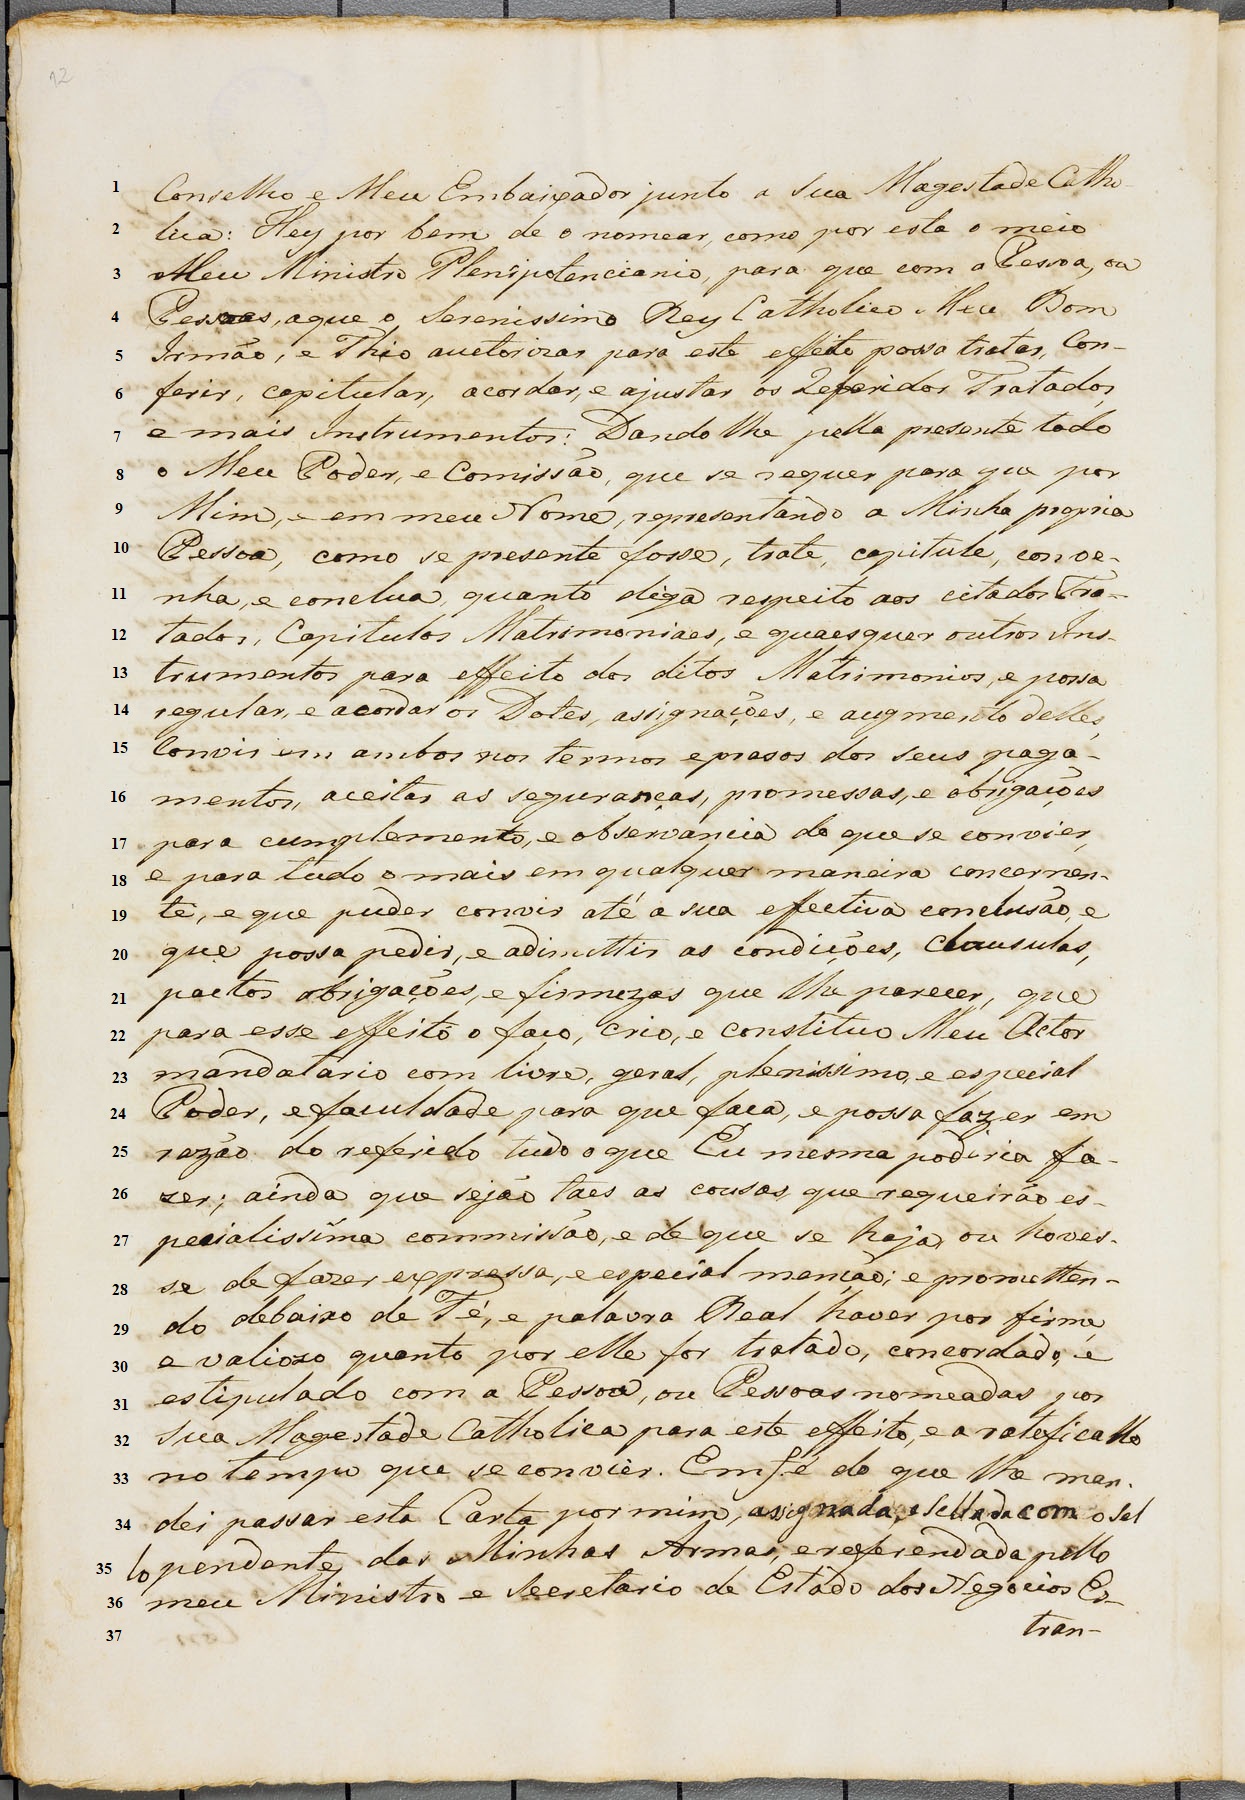 12
1 Conselho e Meu Embaixador junto a Sua Magestade Catho-
2 lica: Hey por bem de o nomear, como por esta o meio
3 Meu Ministro Plenipotenciario, para que com a Pessoa, ou
4 Pessoas, aque o Serenissimo Rey Catholico Meu Bom
5 Irmão, e Thio auctorizar para este effeito possa tratar, Con-
6 ferir, capitular, acordar, e ajustar os Referidos Tratados
7 e mais Instrumentos: Dando lhe pella presente todo
8 o Meu Poder, e Comissão, que se requer para que por
9 Mim, e em meu Nome, representando a Minha propria
10 Pessoa, como se presente fosse, trate, capitule, conve-
11 nha, e conclua, quanto diga respeito aos citados Tra-
12 tados, Capitulos Matrimoniaes, e quaesquer outros Ins-
13 trumentos para effeito dos ditos Matrimonios, e possa
14 regular, e acordar os Dotes, assignações, e augmento delles,
15 Convir em ambos nos termos e prasos dos seus paga-
16 mentos, aceitar as seguranças, promessas, e obrigações
17 para cumplemento, e observancia do que se convier,
18 e para tudo o mais em qualquer maneira concernen-
19 te, e que puder convir até a sua effectiva conclusão, e
20 que possa pedir, e adimittir as condições, clausulas,
21 pactos obrigações, e firmezas que lhe parecer, que
22 para esse effeito o faço, crio, e constituo Meu Actor
23 mandatario com livre, geral, plenissimo, e especial
24 Poder, e faculdade para que faça, e possa fazer em
25 razão do referido tudo o que Eu mesma podiria fa-
26 zer; ainda que sejão taes as cousas, que requeirão es-
27 pecialissima commissão, e de que se haja, ou hoves-
28 se de fazer expressa, e especial menção; e prometten-
29 do debaixo de Fé, e palavra Real haver por firme,
30 e valiozo quanto por elle for tratado, concordado, e
31 estipulado com a Pessoa, ou Pessoas nomeadas por
32 Sua Magestade Catholica para este effeito, e a ratificallo
33 no tempo que se convier. Em fé do que lhe man-
34 dei passar esta Carta por mim, assignada, e Sellada com o Sel
35 lo pendente das Minhas Armas, e referendada pello
36 meu Ministro e Secretario de Estado dos Negocios Es-
37 tran-